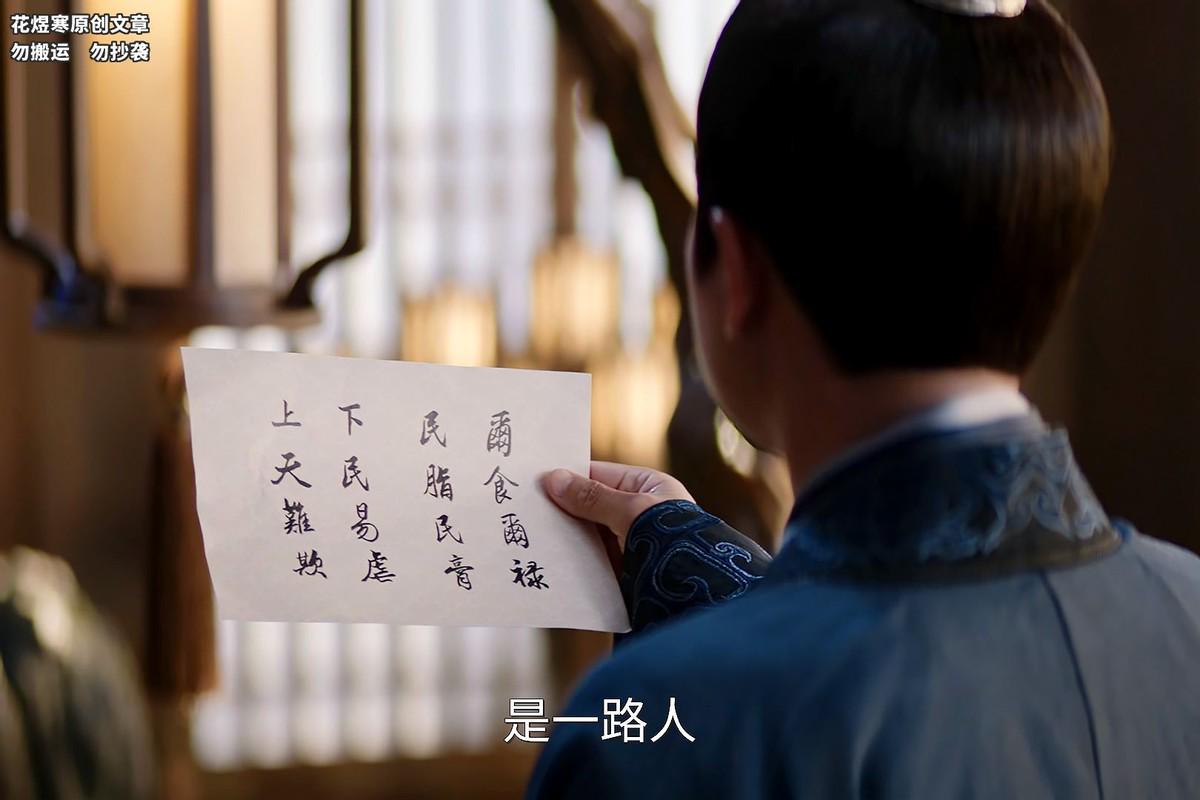 花煜寒原创文章
勿搬运 勿抄袭
爾食爾禄
民脂民膏
下民易虐
上天難欺
是一路人